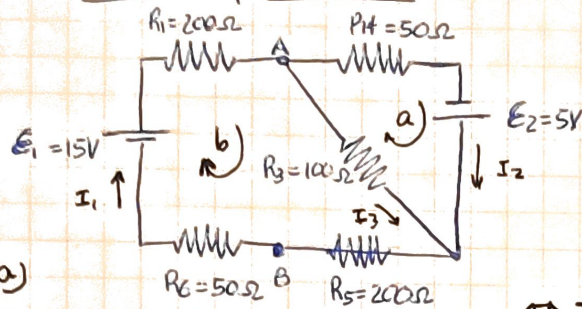 R₁=200Ω
R4=50Ω
A
ε₁=15V
b)
a)
ε₂=5V
R₃=100Ω
I₁
I₂
I₃
a)
R₆=50Ω
B
R₅=200Ω